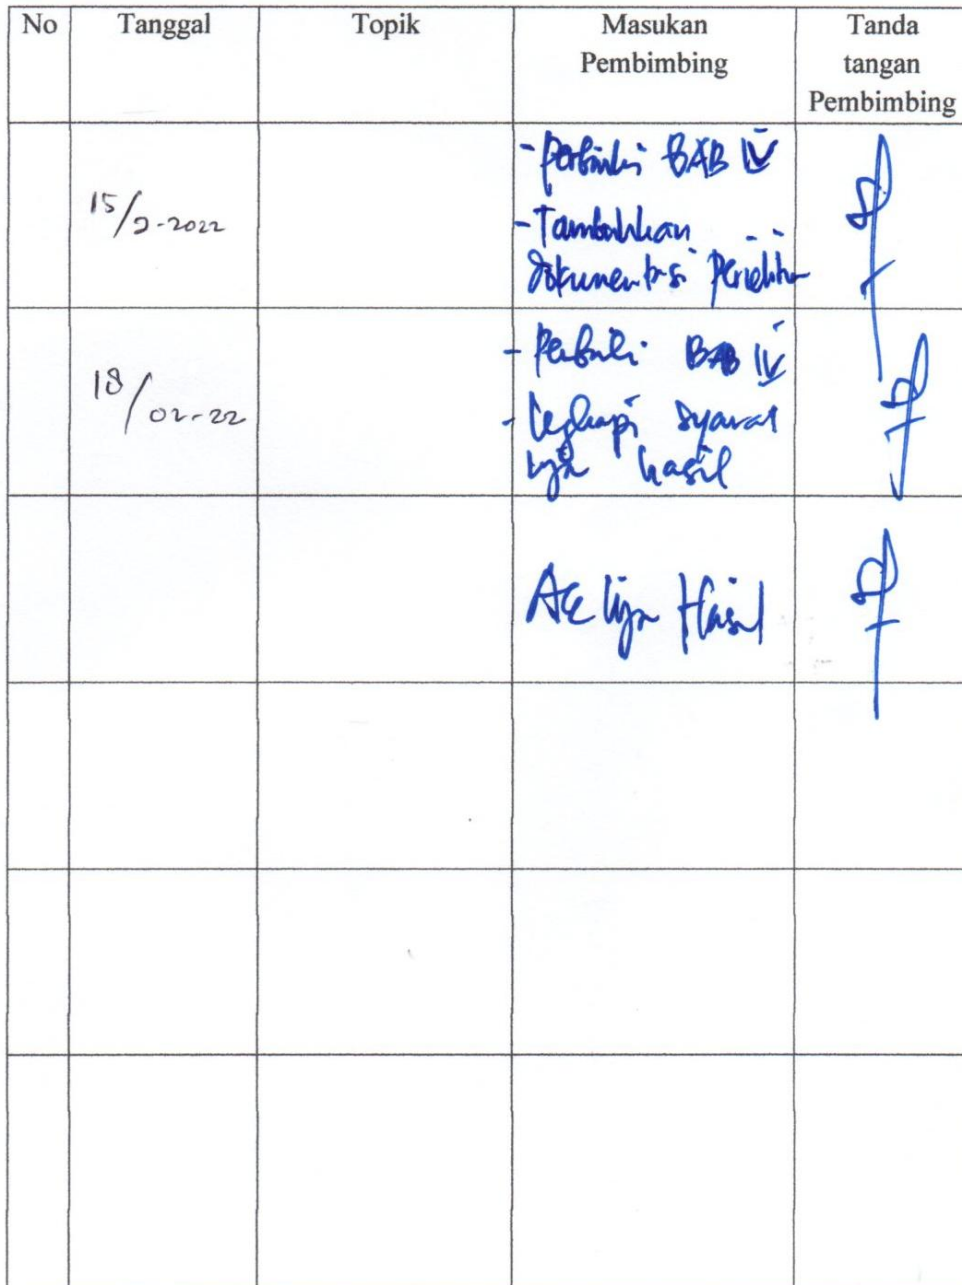 No Tanggal Topik Masukan Pembimbing Tanda tangan Pembimbing
15/2-2022
- Perbaiki BAB IV
- Tambahkan
dokumentasi Penelitian
18/02-22
- Perbaiki BAB IV
- Lengkapi syarat
ujian hasil
Acc Ujian Hasil